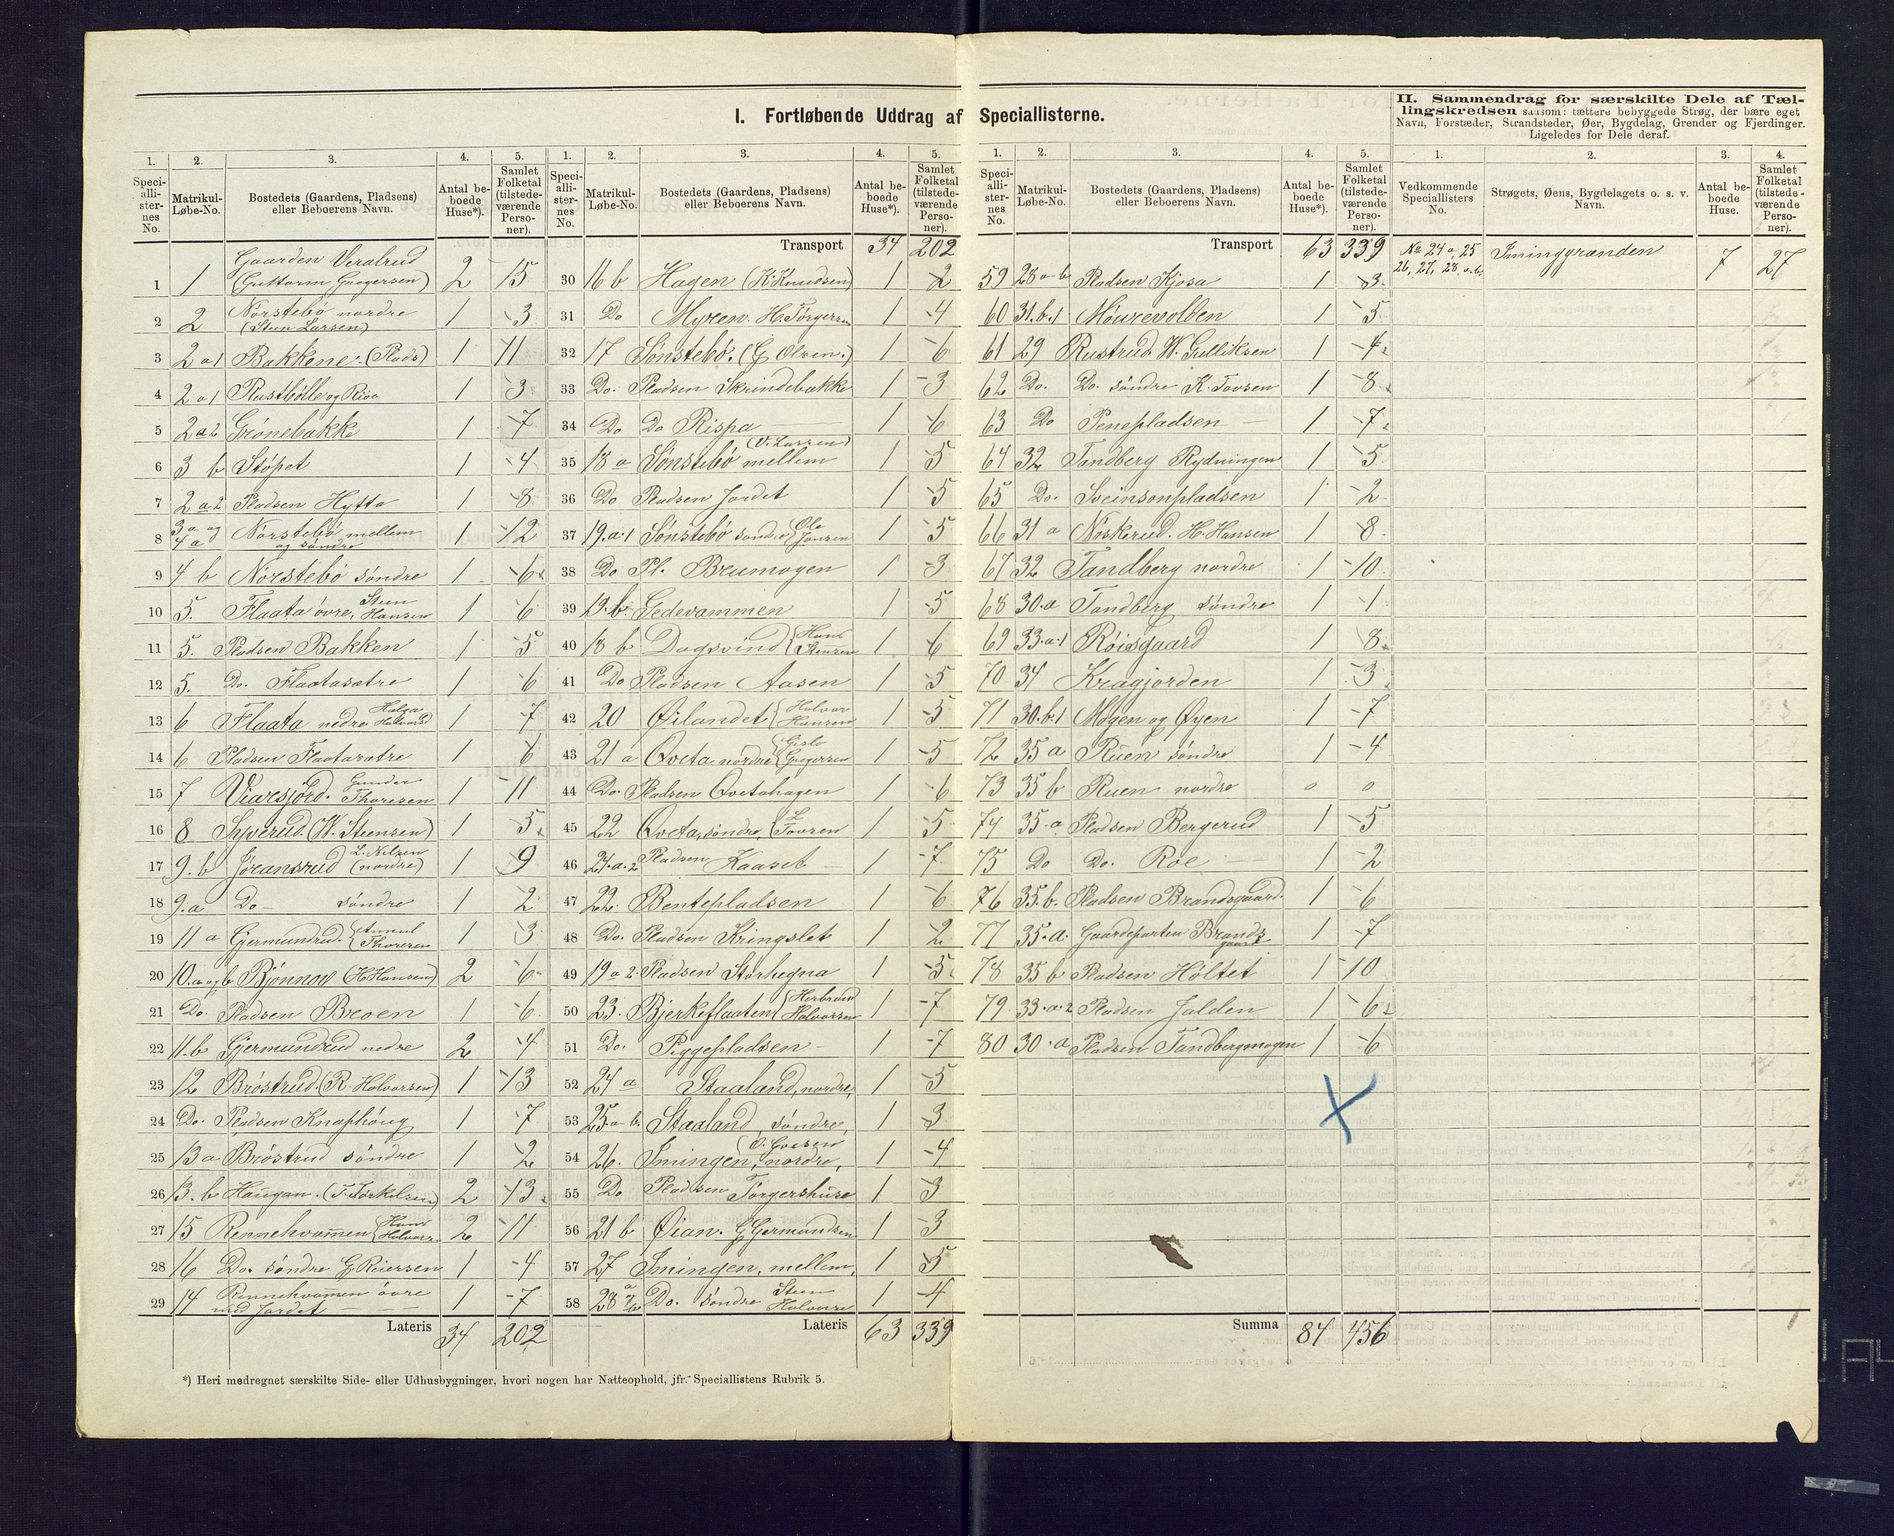 I. Fortløbende Uddrag af Speciallisterne.
II. Sammendrag for særskilte Dele af Tællingskredsen saasom: tættere bebyggede Strøg, der bære eget
Navn, Forstæder, Strandsteder, Øer, Bygdelag, Grender og Fjerdinger.
Ligeledes for Dele deraf.
1. 2. 3. 4. 5.
Speciallisternes No. Matrikul-Løbe-No. Bostedets (Gaardens, Pladsens) eller Beboerens Navn. Antal beboede Huse*). Samlet Folketal (tilstedeværende Personer).
1 1 Gaarden Veralrud (Guttorm Gregersen) 2 15
2 2 Norstebø nordre (Steen Larsen) 1 3
3 2 a 1 Bakkene (Plads) 1 11
4 2 a 1 Rustbølle og Rioa 1 3
5 2 a 2 Grønebakke 1 7
6 3 b Støpet 1 4
7 2 a 2 Pladsen Hytta 1 8
8 3 a og 4 a Norstebø mellem og søndre 1 12
9 4 b Norstebø søndre 1 6
10 5. Flaata øvre, Steen Hansen 1 6
11 5. Pladsen Bakken 1 5
12 5. Do. Flaatasætre 1 6
13 6 Flaata nedre Helga Halvord 1 7
14 6 Pladsen Flaatasætre 1 6
15 7 Viursjord. Gunder Thoresen 1 11
16 8 Syverud (W. Steensen) 1 5
17 9. b Jøransrud L. Nilsen (nordre) 1 9
18 9. a Do søndre 1 2
19 11 a Gjermundrud. Thoresen 1 3
20 10. a og b Bjønnøe (H Hansen) 2 6
21 Do. Pladsen Breoen 1 6
22 11. b Gjermundrud nedre 2 4
23 12 Brøstrud (R Halvorsen) 1 13
24 Do. Pladsen Knaphøug 1 7
25 13 a Brøstrud søndre 1 2
26 13. b Haugan. (T. Torkelsen) 2 13
27 15 Rennehvammen Hans Halvors 2 11
28 16 Do. søndre G Reiersen 1 4
29 14 Rennehvammen øvre med Jordet 1 7
Lateris 34 202
1. 2. 3. 4. 5.
Speciallisternes No. Matrikul-Løbe-No. Bostedets (Gaardens, Pladsens) eller Beboerens Navn. Antal beboede Huse*). Samlet Folketal (tilstedeværende Personer).
Transport 34 202
30 16 b Hagen (K Knudsen) 1 2
31 Do Myren. H. Torgersen 1 4
32 17 Sønstebø. (G Olsen.) 1 6
33 Do. Pladsen Skrindebakke 1 3
34 Do Do Rispa 1 6
35 18 a Sønstebø mellem (V. Larsen) 1 5
36 Do Pladsen Jordet 1 5
37 19. a. 1 Sønstebø søndre Ole Jonsen 1 5
38 Do Pl. Breumogen 1 3
39 19. b. Gedevammen 1 5
40 18 b Dagsvind Hans Steensen 1 6
41 Do Pladsen Aasen 1 5
42 20 Øilandet Halvor Hansen 1 5
43 21 a Qveta nordre Gislo Gregersen 1 5
44 Do. Pladsen Qvetahagen 1 6
45 22 Qveta, søndre, L Tovsen 1 5
46 21. a. 2 Pladsen Kaaset 1 7
47 22. Bentepladsen 1 6
48 Do. Pladsen Kringslet 1 2
49 19 a 2 Pladsen Størhegna 1 5
50 23. Bjerkeflaaten Herbrand Halvorsen 1 7
51 Do. Piggepladsen 1 7
52 24 a Staaland, nordre, 1 5
53 25. a-b. Staaland, søndre, 1 3
54 26. Imingen, nordre, 1 4
55 Do Pladsen Torgershuse 1 3
56 21 b Øian. G Germundsen 1 3
57 27 Imingen, mellem, 1 5
58 28 a/b Do. søndre Steen Halvorse 1 4
Lateris 63 339
1. 2. 3. 4. 5.
Speciallisternes No. Matrikul-Løbe-No. Bostedets (Gaardens, Pladsens) eller Beboerens Navn. Antal beboede Huse*). Samlet Folketal (tilstedeværende Personer).
Transport 63 339
59 28 a-b Pladsen Kjosa 1 3
60 31. b. 1 Mourevolden 1 5
61 29 Rustrud W. Gulliksen 1 4
62 Do. Do søndre K. Tovsen 1 8
63 Do Penepladsen 1 7
64 32 Tandberg Rydningen 1 5
65 Do. Sveinsonpladsen 1 2
66 31 a Noskerud. H. Hansen 1 8
67 32 Tandberg nordre 1 10
68 30. a Tandberg søndre 1 1
69 33. a. 1 Røisgaard 1 8
70 34 Kragjorden 1 3
71 30. b. 1 Mogen og Øyen 1 7
72 35 a Ruen søndre 1 4
73 35 b Ruen nordre 0 0
74 35. a Pladsen Bergerud 1 5
75 Do Do. Roe 1 2
76 35. b. Pladsen Brandsgaard 1 6
77 35. a. Gaardeparten Brandsgaard 1 7
78 35 b Pladsen Høltet 1 10
79 33. a. 2 Pladsen Jalden 1 6
80 30. a Pladsen Tandbergmogen 1 6
Summa 84 456
1. 2. 3. 4.
Vedkommende Speciallisters No. Strøgets, Øens, Bygdelagets o. s. v. Navn. Antal beboede Huse. Samlet Folketal (tilstedeværende Personer).
No 24 a, 25 26, 27, 28, a.b. Iminggranden 7 27
*) Heri medregnet særskilte Side- eller Udhusbygninger, hvori nogen har Natteophold, jfr. Speciallistens Rubrik 5.